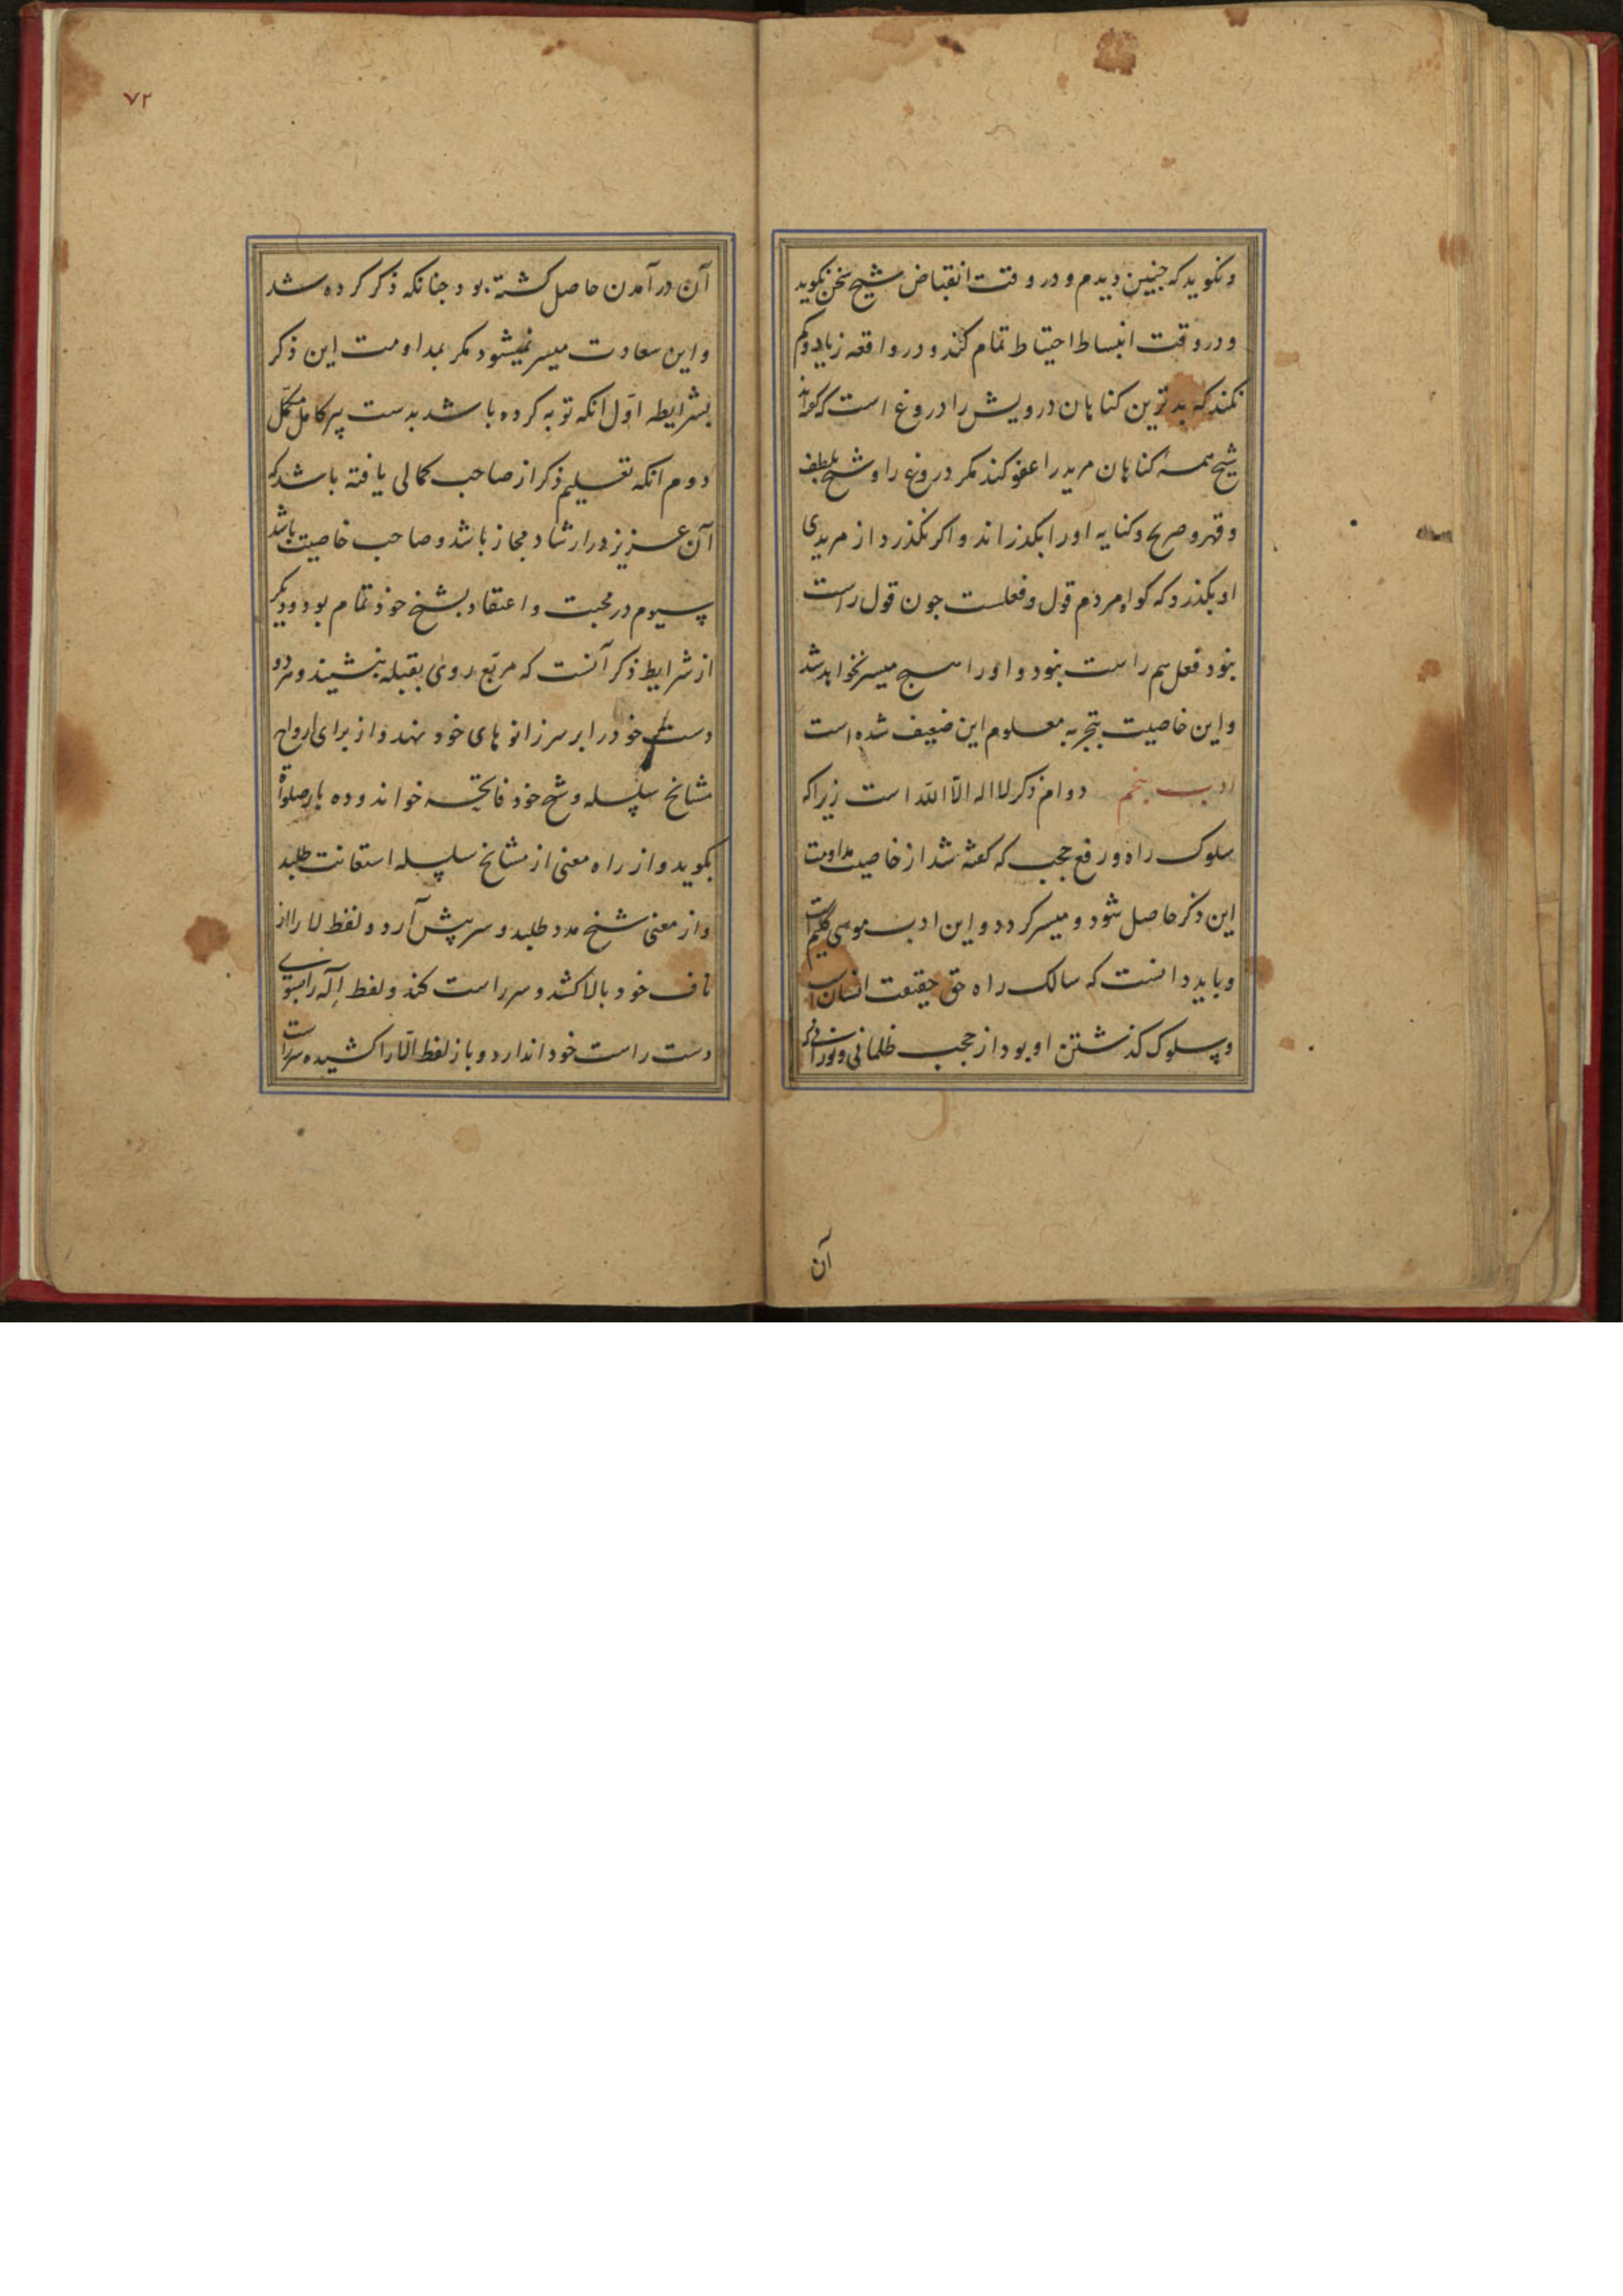 ونکوید که جنین دیدم و در وقت انقباض شیخ سخن نکوید
و در وقت انبساط احتیاط تمام کند و در واقعه زیاد و کم
نکند که بدترین کناهان درویش را دروغ است که کواند
شیخ همه کناهان مرید را عفو کند مکر دروغ را و شیخ بلطف
و قهر و صریح و کنایه او را بکذراند و اکر نکذرد از مریدی
او بکذرد که کواه مردم قول و فعلست جون قول راست
نبود فعل هم راست نبود و او را هیج میسر نخواهد شد
و این خاصیت بتجربه معلوم این ضعیف شده است
ادب پنجم دوام ذکر لا اله الا الله است زیرا که
سلوک راه و رفع حجب که کفته شد از خاصیت مداومت
این ذکر حاصل شود و میسر کردد و این ادب موسی کلیم است
و باید دانست که سالک راه حق حقیقت انسان است
و سلوک کذشتن او بود از حجب ظلمانی و نورانی
آن
۷۲
آن در آمدن حاصل کشته بود جنانکه ذکر کرده شد
و این سعادت میسر نمیشود مکر بمداومت این ذکر
بشرایطه اوّل انکه توبه کرده باشد بدست پیر کامل مکمّل
دوم انکه تعلیم ذکر از صاحب کمالی یافته باشد که
آن عزیز در ارشاد مجاز باشد و صاحب خاصیت باشد
سیوم در محبت و اعتقاد بشیخ خود تمام بود و دیکر
از شرایط ذکر آنست که مربّع روی بقبله بنشیند و هر دو
دست خود را بر سر زانوهای خود نهد و از برای ارواح
مشایخ سلسله و شیخ خود فاتحه خواند و ده بار صلوة
بکوید و از راه معنی از مشایخ سلسله استعانت طلبد
و از معنی شیخ مدد طلبد و سر پیش آرد و لفظ لا را از
ناف خود بالا کشد و سر راست کند و لفظ اِلٓه را بسوی
دست راست خود اندازد و باز لفظ الّا را کشیده سر راست